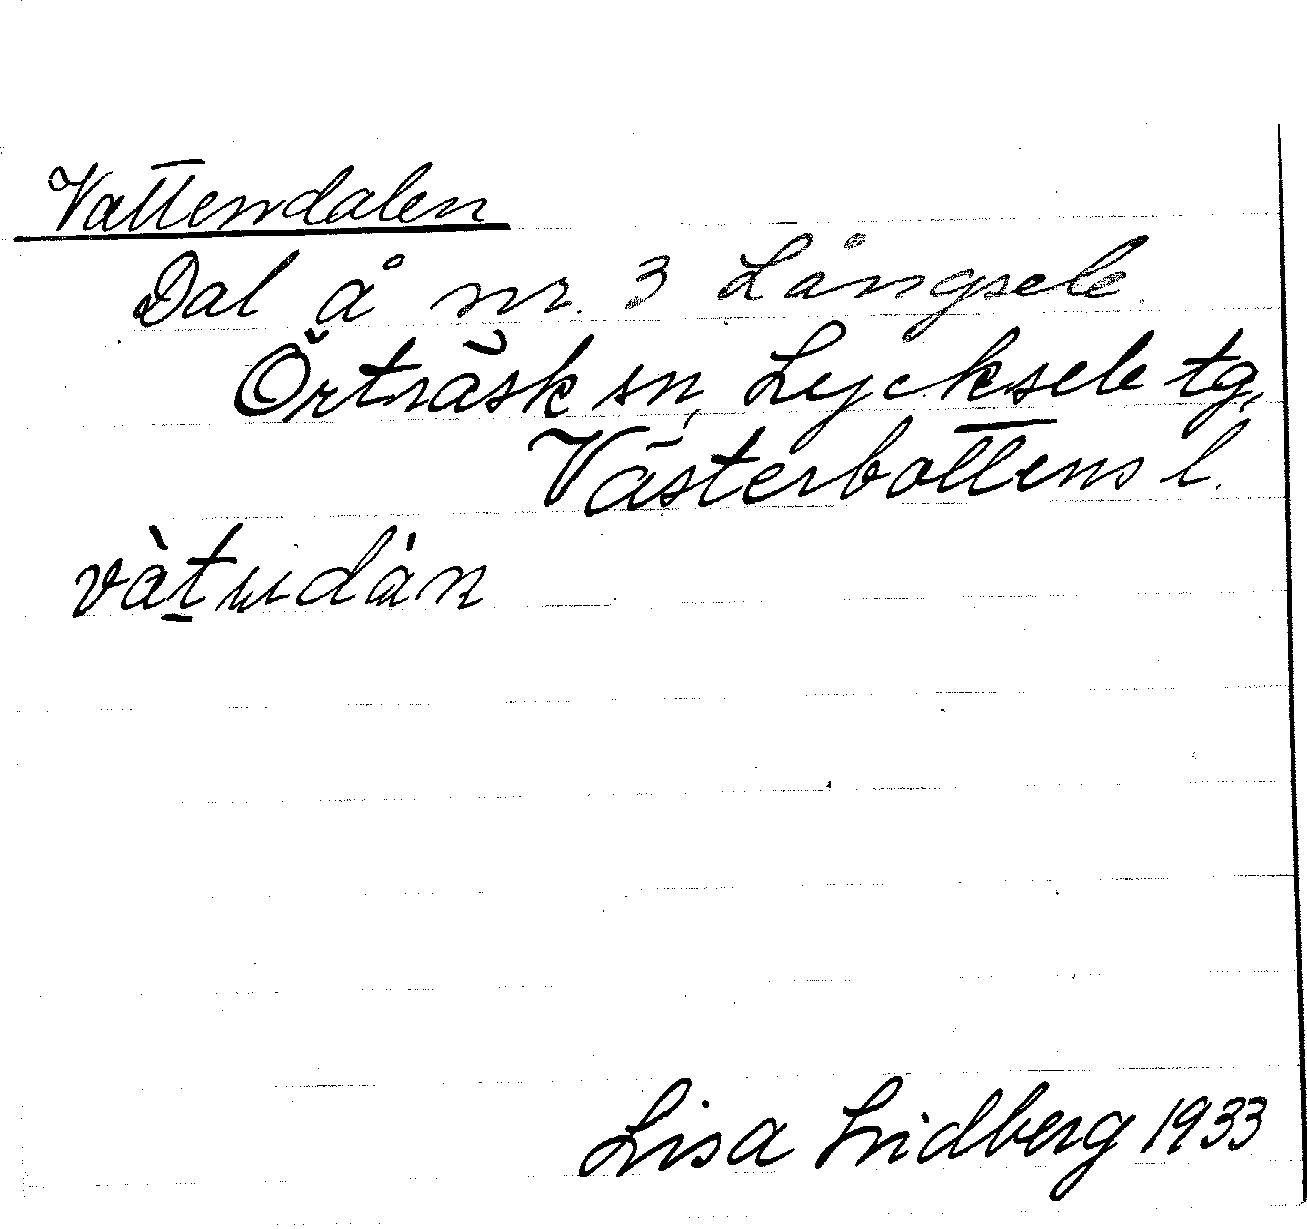 Vattendalen
Dal å nr. 3 Långsele.
Örträsk sn, Lycksele tg,
Västerbottens l.
Lisa Lidberg 1933